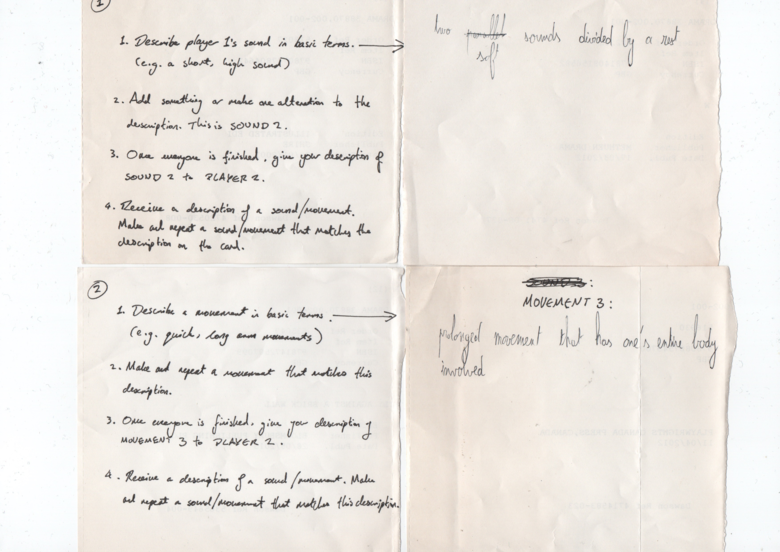 1
1. Describe player 1's sound in basic terms.
(e.g. a short, high sound)
2. Add something or make one alteration to the
description. This is SOUND 2.
3. Once everyone is finished, give your description of
SOUND 2 to PLAYER 2.
4. Receive a description of a sound/movement.
Make and repeat a sound/movement that matches the
description on the card.
two sounds divided by a rest
soft
2
1. Describe a movement in basic terms.
(e.g. quick, long arm movements)
2. Make and repeat a movement that matches this
description.
3. Once everyone is finished, give your description of
MOVEMENT 3 to PLAYER 2.
4. Receive a description of a sound/movement. Make
and repeat a sound/movement that matches this description.
MOVEMENT 3:
prolonged movement that has one's entire body
involved